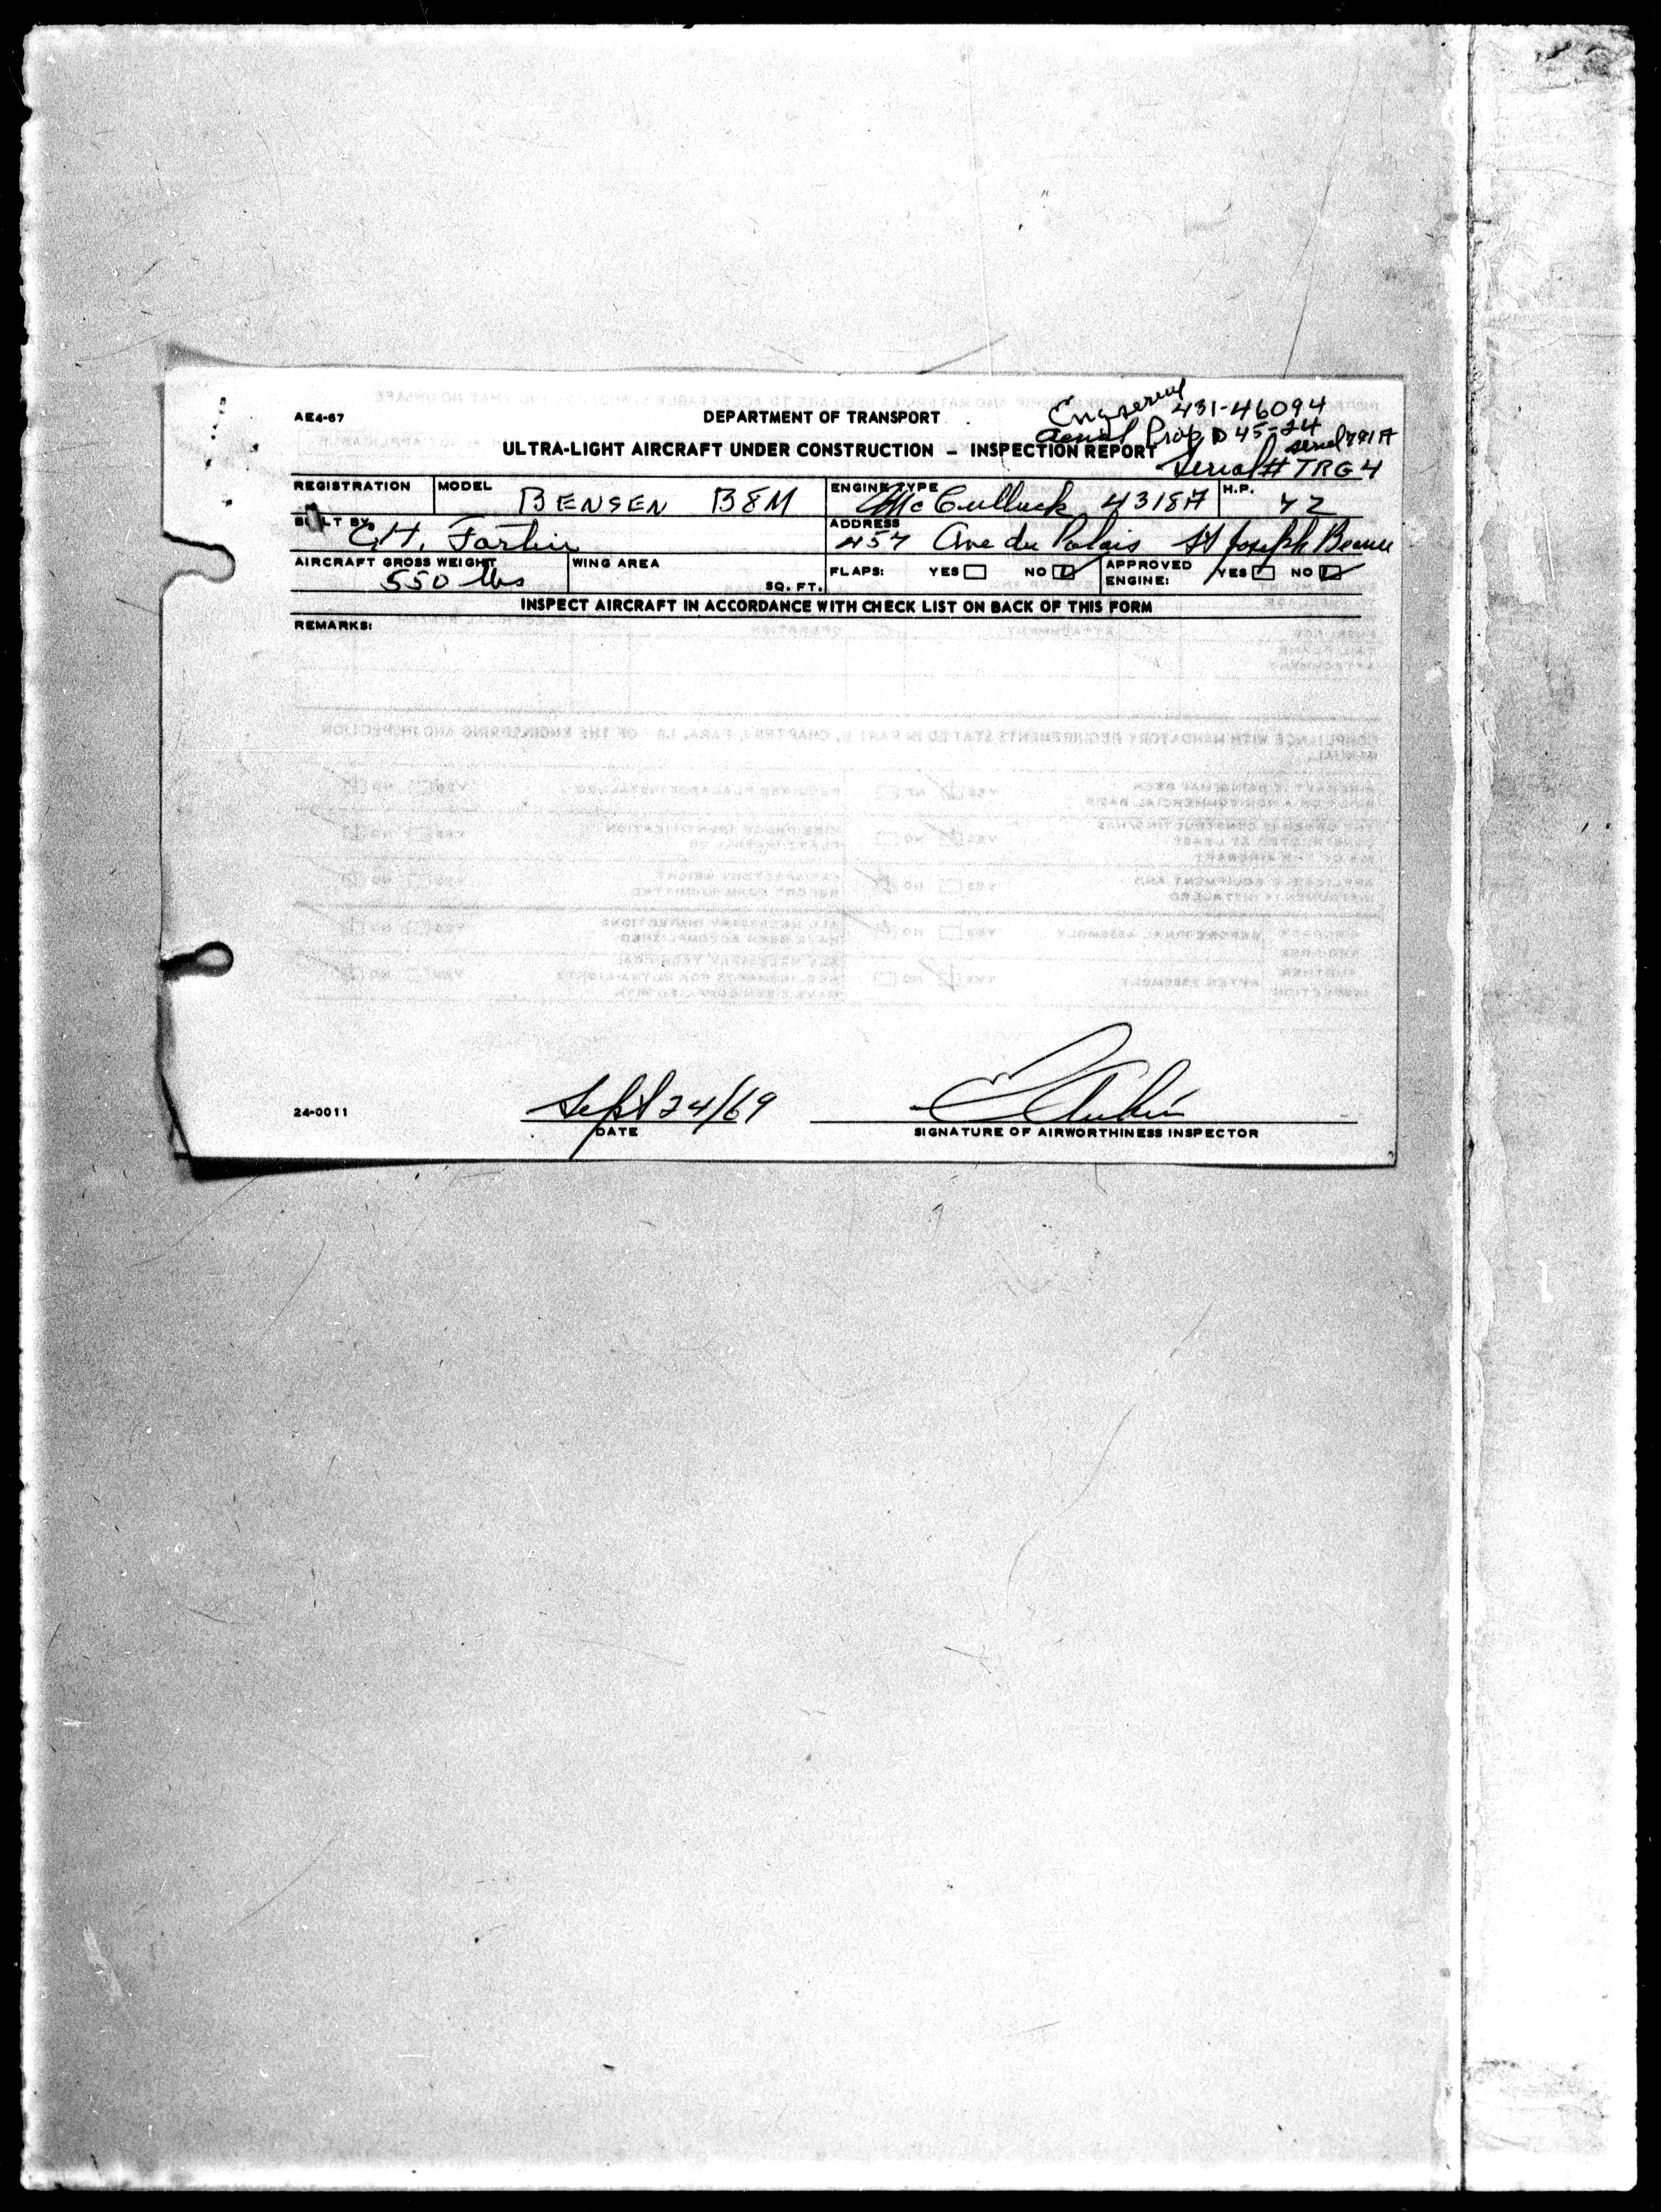 AE4-67
DEPARTMENT OF TRANSPORT
Eng serial 431-46094
Prop D 45-24
serial 791A
ULTRA-LIGHT AIRCRAFT UNDER CONSTRUCTION – INSPECTION REPORT
Serial # TRG4
REGISTRATION MODEL BENSEN B8M ENGINE TYPE McCulluck 4318A H.P. 72
BUILT BY G.H. Fortin ADDRESS 457 Ave du Palais St Joseph Beauce
AIRCRAFT GROSS WEIGHT 550 lbs WING AREA SQ. FT. FLAPS: YES NO APPROVED ENGINE: YES NO
INSPECT AIRCRAFT IN ACCORDANCE WITH CHECK LIST ON BACK OF THIS FORM
REMARKS:
24-0011
Sept 24/69
DATE
SIGNATURE OF AIRWORTHINESS INSPECTOR